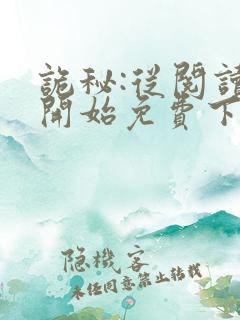 詭秘:從閱讀
開始免費下
隐機客
未任同意禁止转载